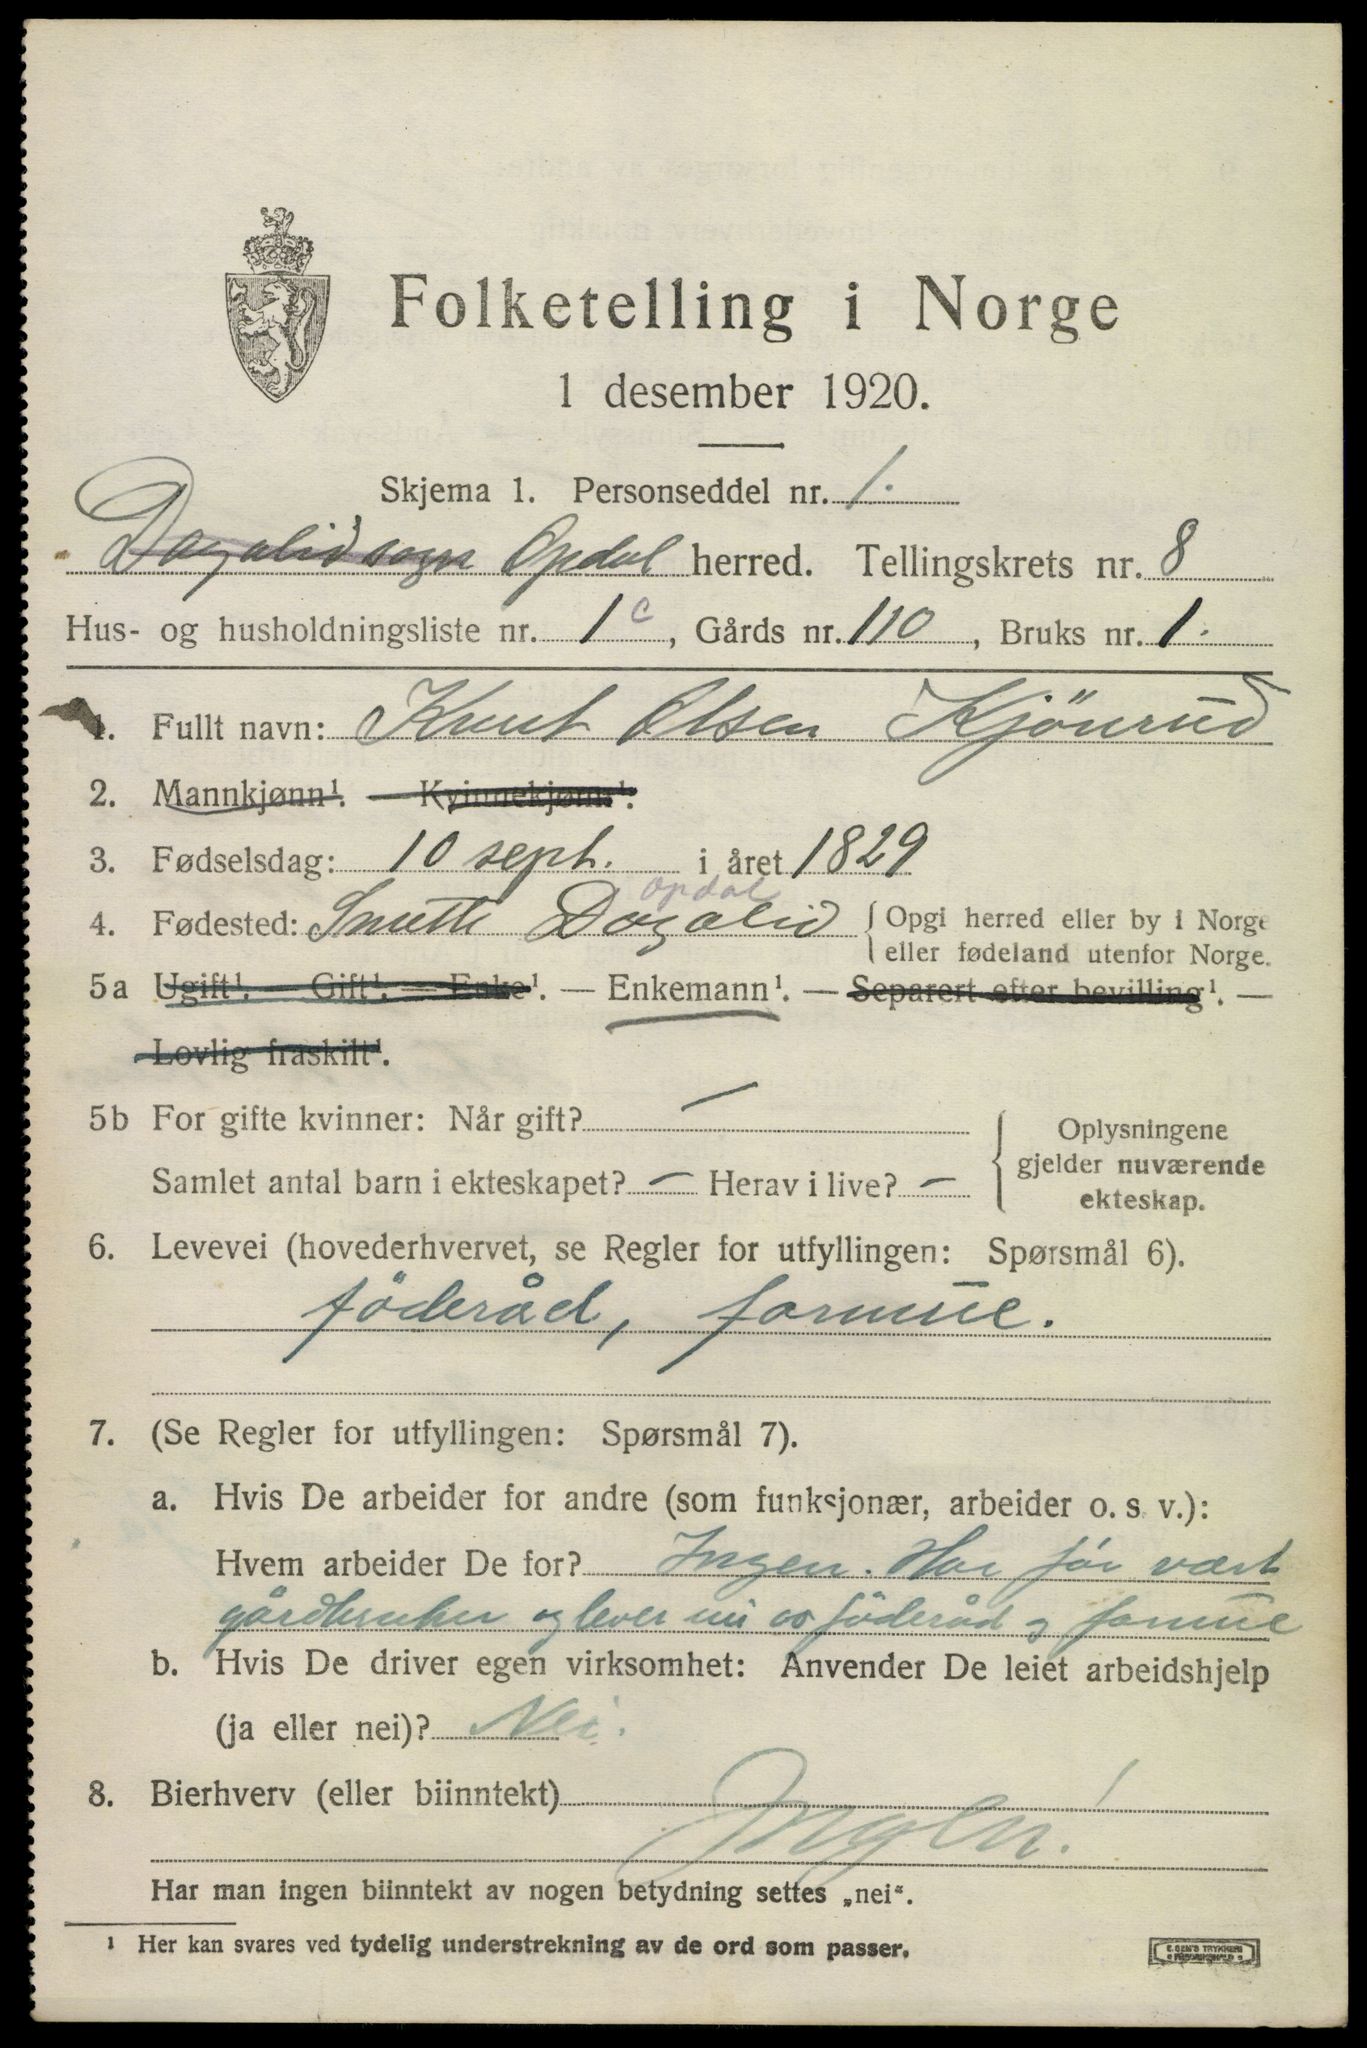 Folketelling i Norge
1 desember 1920.
Skjema 1. Personseddel nr. 1.
Dagalid sogn Opdal herred. Tellingskrets nr. 8
Hus- og husholdningsliste nr. 1c, Gårds nr. 110, Bruks nr. 1.
1. Fullt navn: Knut Olsen Kjönrud
2. Mannkjønn¹. — Kvinnekjønn¹.
3. Fødselsdag: 10 sept. i året 1829
Opdal
4. Fødested: Dagalid { Opgi herred eller by i Norge
eller fødeland utenfor Norge.
5a Ugift¹. — Gift¹. — Enke¹. — Enkemann¹. — Separert efter bevilling¹. —
Lovlig fraskilt¹.
5b For gifte kvinner: Når gift? —
Samlet antal barn i ekteskapet? — Herav i live? —
Oplysningene
gjelder nuværende
ekteskap.
6. Levevei (hovederhvervet, se Regler for utfyllingen: Spørsmål 6).
föderåd, formue.
7. (Se Regler for utfyllingen: Spørsmål 7).
a. Hvis De arbeider for andre (som funksjonær, arbeider o. s. v.):
Hvem arbeider De for? Ingen. Har før vært
gårdbruker og lever nu av föderåd og formue
b. Hvis De driver egen virksomhet: Anvender De leiet arbeidshjelp
(ja eller nei)? Nei.
8. Bierhverv (eller biinntekt) Ingen!
Har man ingen biinntekt av nogen betydning settes „nei“.
¹ Her kan svares ved tydelig understrekning av de ord som passer.